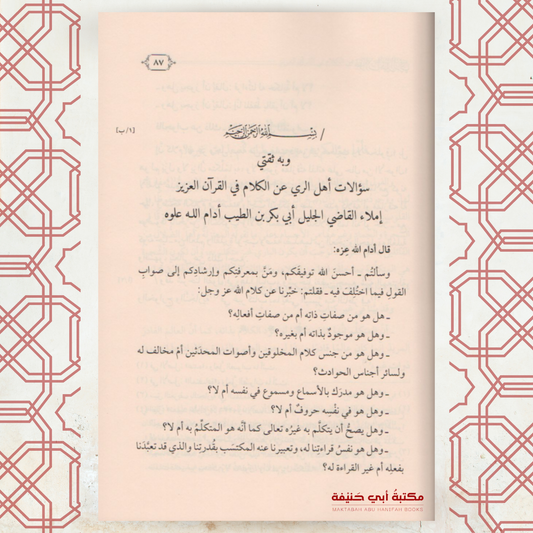 ٨٧
[١/ب]
/ بِسْمِ اللَّهِ الرَّحْمَنِ الرَّحِيمِ
وبه ثقتي
سؤالات أهل الري عن الكلام في القرآن العزيز
إملاء القاضي الجليل أبي بكر بن الطيب أدام الله علوه
قال أدام الله عِزه:
وسألتُم ـ أحسنَ الله توفيقَكم، ومَنَّ بمعرفتِكم وإرشادِكم إلى صوابِ
القولِ فيما اختُلِفَ فيه ـ فقلتم: خبِّرنا عن كلام الله عز وجل:
ـ هل هو من صفاتِ ذاتِه أم من صفاتِ أفعالِه؟
ـ وهل هو موجودٌ بذاته أم بغيره؟
ـ وهل هو من جنس كلام المخلوقين وأصوات المحدَثين أمْ مخالف له
ولسائر أجناس الحوادث؟
ـ وهل هو مدرَك بالأسماع ومسموع في نفسه أم لا؟
ـ وهل هو في نفْسِه حروفٌ أم لا؟
ـ وهل يصحُّ أن يتكلَّم به غيرُه تعالى كما أنَّه هو المتكلِّمُ به أم لا؟
ـ وهل هو نفسُ قراءتِنا له، وتعبيرنا عنه المكتسَب بقُدرتِنا والذي قد تعبَّدَنا
بفعلِه أم غير القراءة له؟
مكتبةُ أبي حَنيْفة
MAKTABAH ABU HANIFAH BOOKS